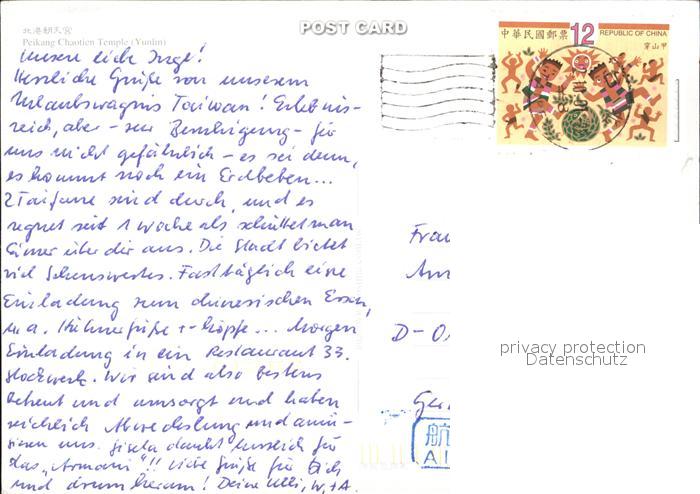 北港朝天宮
Peikang Chaotien Temple (Yunlin)
POST CARD
中華民國郵票 12 REPUBLIC OF CHINA
穿山甲
Unsere liebe Inge!
Herzliche Grüße von unserem
Urlaubswagnis Taiwan! Erlebnis-
reich, aber - zur Beruhigung - für
uns nicht gefährlich - es sei denn,
es kommt noch ein Erdbeben...
2 Taifune sind durch, und es
regnet seit 1 Woche als schüttet man
Eimer über dir aus. Die Stadt bietet
viel Sehenswertes. Fast täglich eine
Einladung zum chinesischen Essen,
u.a. Hühnerfüße + -köpfe... Morgen
Einladung in ein Restaurant 33.
Stockwerk. Wir sind also bestens
betreut und umsorgt und haben
reichlich Abwechslung und amü-
sieren uns. Gisela dankt herzlich für
das "Armani"!! Viele Grüße für Dich
und drumherum! Deine Ulli, W. + A.
Frau
D-
Ger
航
privacy protection
Datenschutz